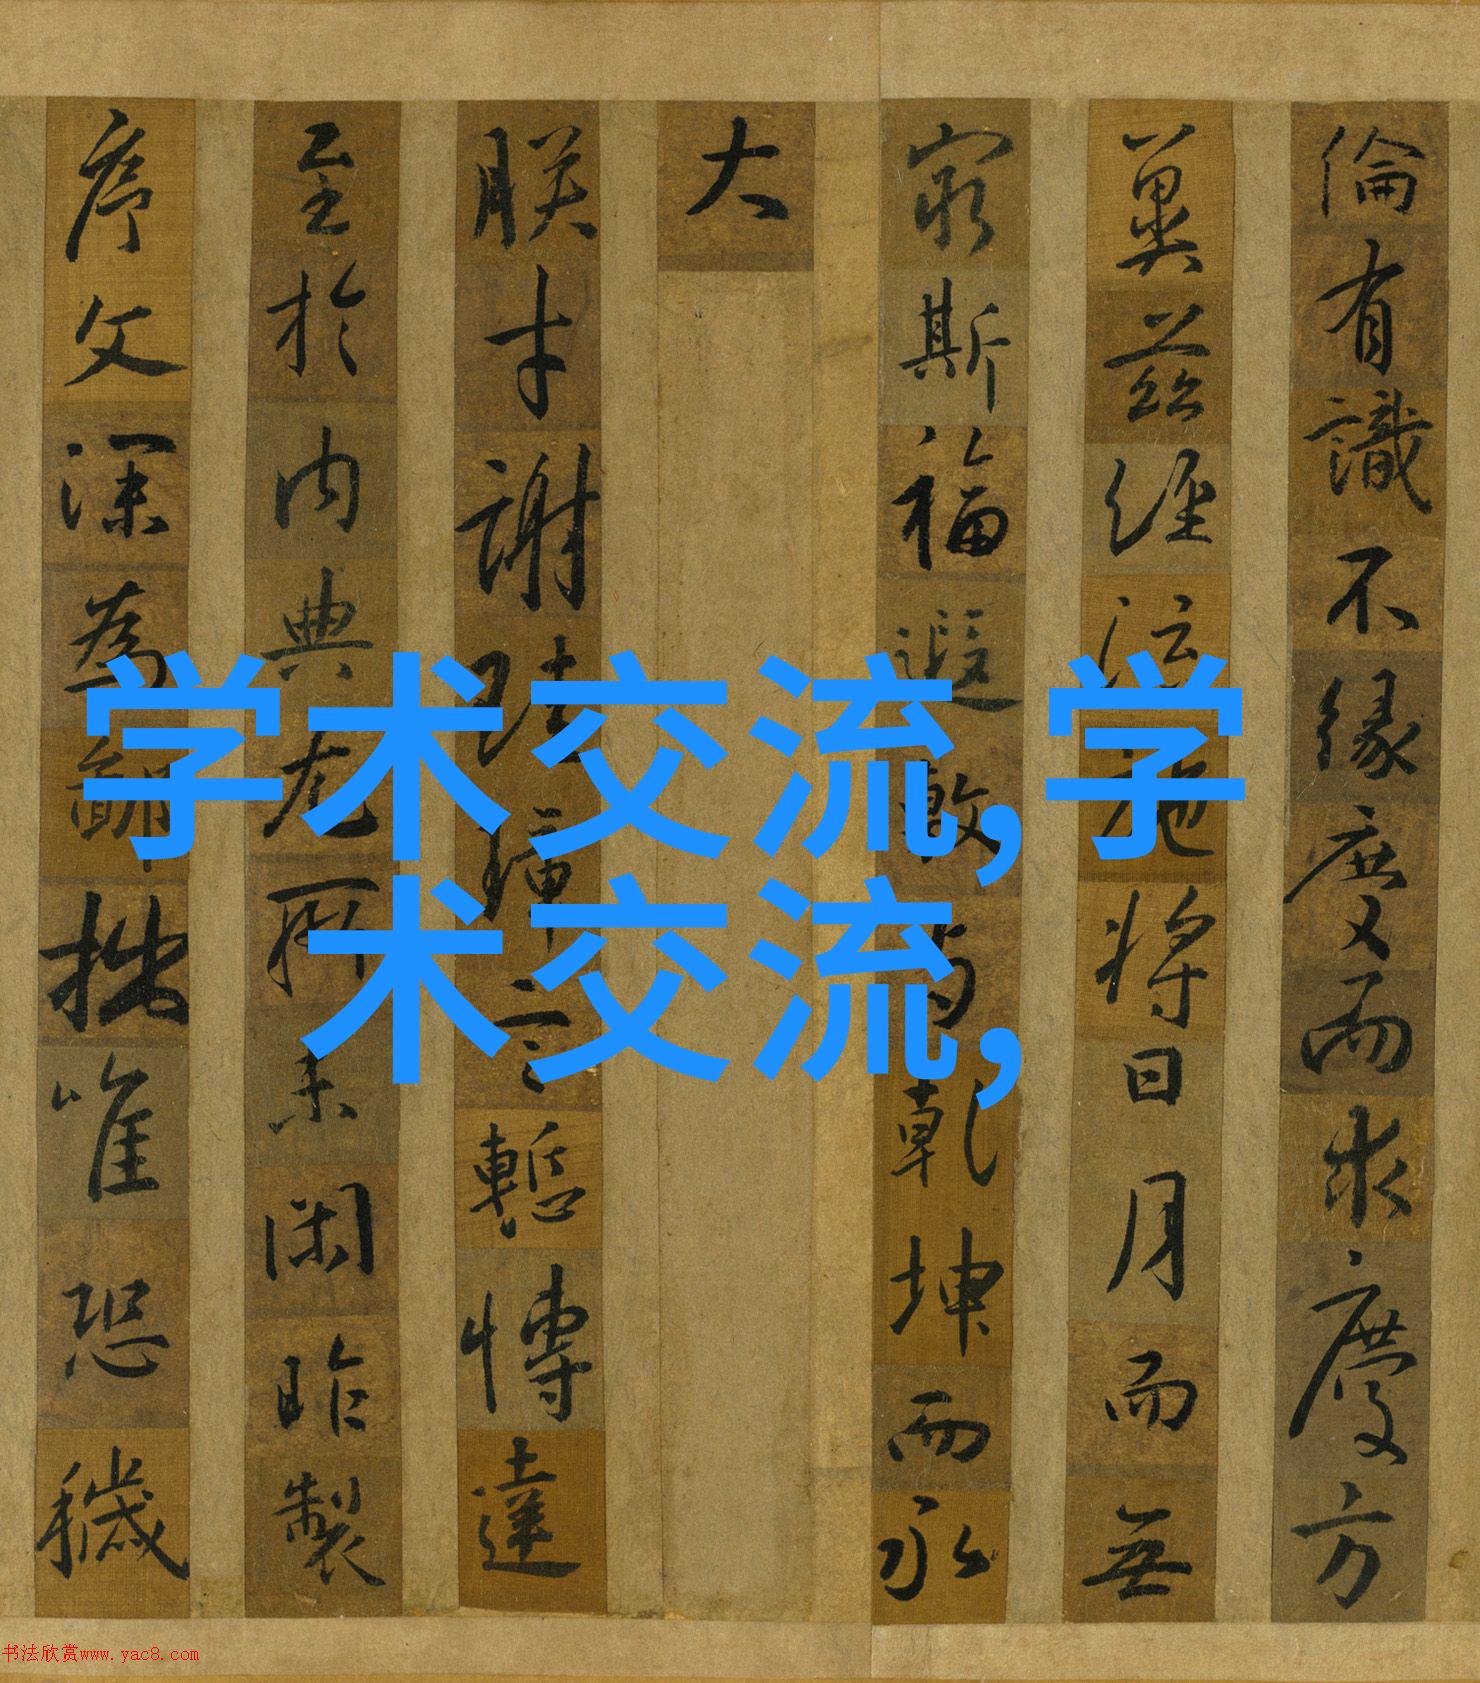 倫有識不緣慶而求慶方
冀茲經流施將日月而無
窮斯福遐敷与乾坤而永
大
朕才謝珪璋言慙愽達
至於内典尤所未閑昨製
序文深為鄙拙唯恐穢
学术交流,学
术交流,
书法欣赏www.yac8.com